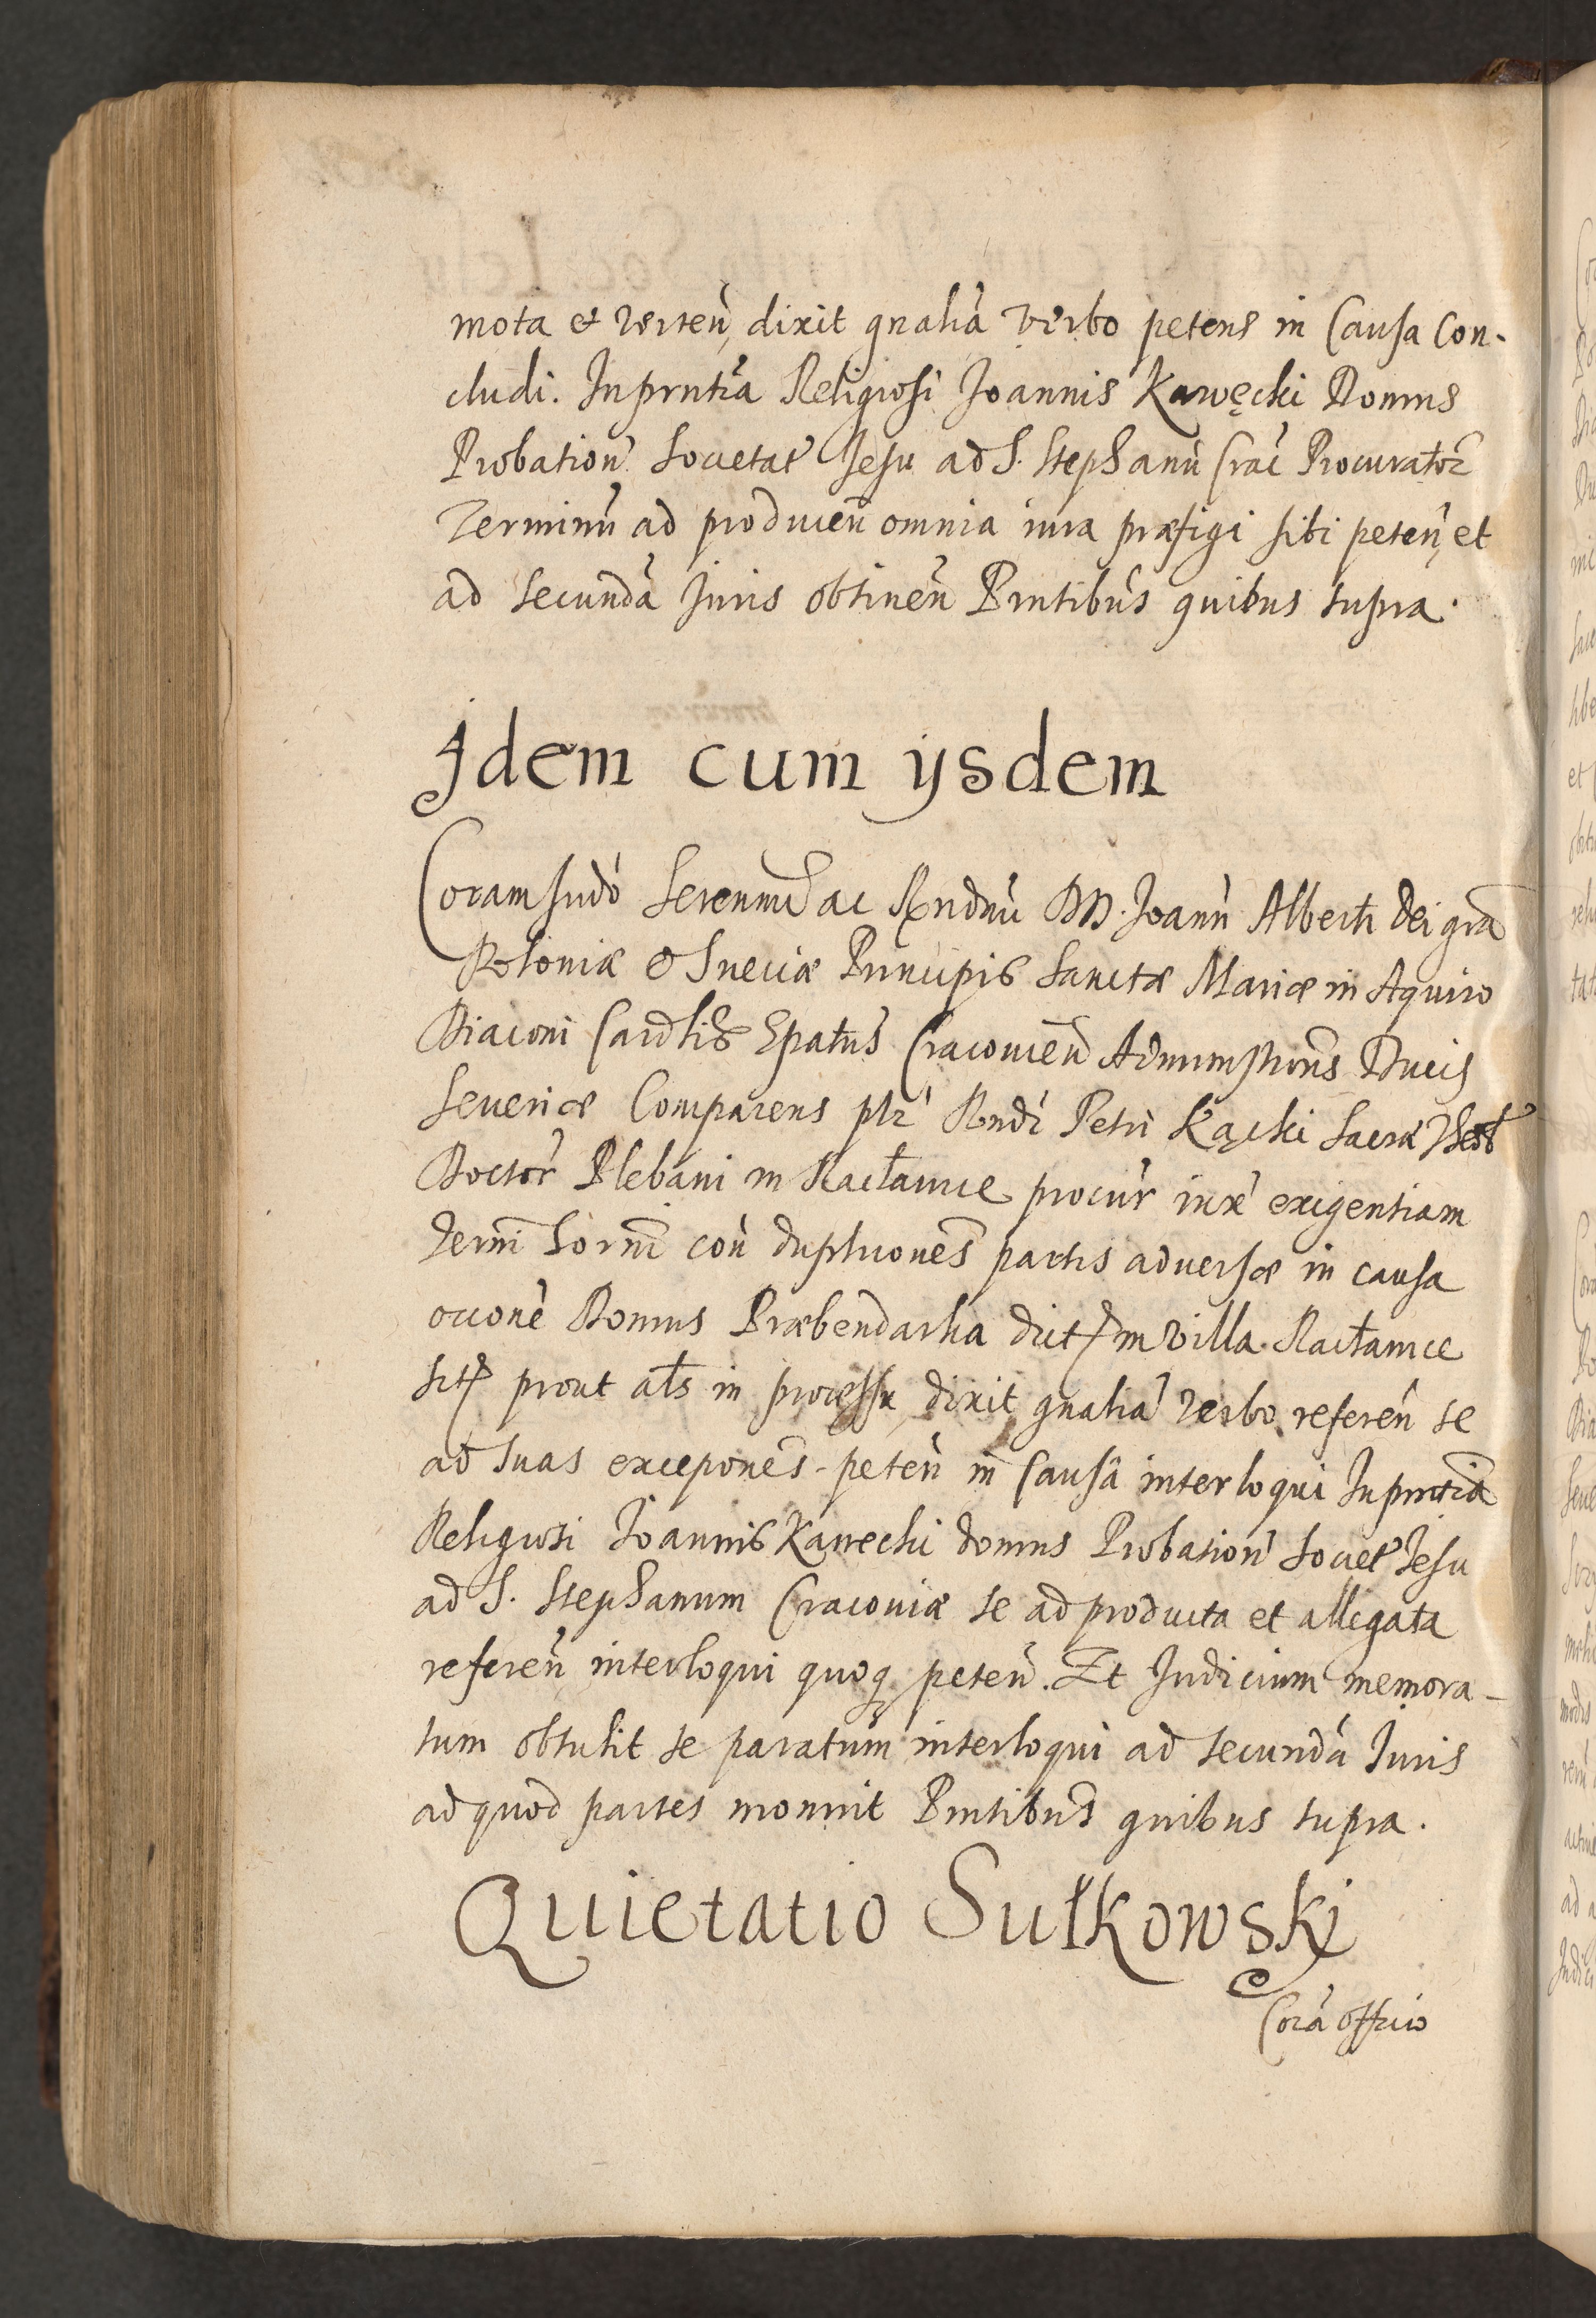 mota et verteñ, dixit gnalia verbo petens in Causa Con-
cludi. In prntia Religiosi Joannis Kawęcki Domus
Probation Societat Jesu ad S. Stephanū Crac Procurator
Terminū ad producen omnia iura præfigi sibi peteñ, et
ad secundā Juris obtineñ Prntibus quibus supra.
Jdem cum ysdem
Coram Judo Serenmi ac Rndmi DD. Joann Alberti Dei gra
Poloniæ et Sueciæ Principis Sanctæ Mariæ in Aquiro
Diaconi Cardlis Epatus Cracovien Adminstrons Ducis
Severiæ Comparens plr Rndi Petri Kącki Sacræ Theol
Doctor Plebani in Racławice procur iuxe exigentiam
termi horni con duplicones partis adversæ in causa
occone Domus Præbendaria dict in villa Racławice
sit prout als in processu dixit gnalia verbo refereñ se
ad suas excepones peteñ in Causa interloqui In prntia
Religiosi Joannis Kawecki domus Probation Societ Jesu
ad S. Stephanum Cracoviæ se ad producta et allegata
refereñ interloqui quoq peteñ. Et Judicium memora-
tum obtulit se paratum interloqui ad secundā Juris
ad quod partes monuit Prntibus quibus supra.
Quietatio Sułkowskj
Corā offcio